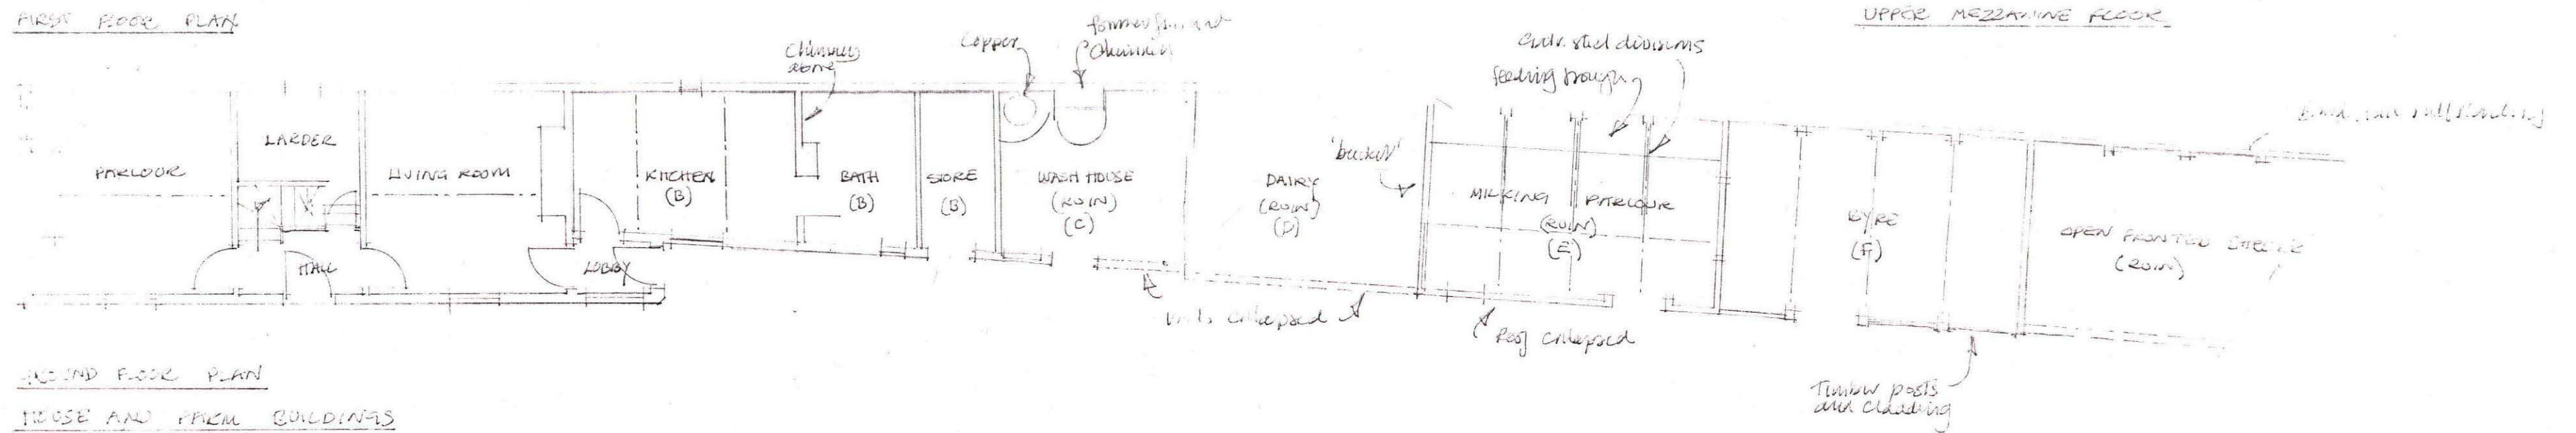 FIRST FLOOR PLAN
UPPER MEZZANINE FLOOR
Chimney
above
Copper
former
galv. steel divisions
feeding trough
PARLOUR
LARDER
LIVING ROOM
KITCHEN
(B)
BATH
(B)
STORE
(B)
WASH HOUSE
(RUIN)
(C)
DAIRY
(RUIN)
(D)
MILKING PARLOUR
(RUIN)
(E)
BYRE
(F)
OPEN FRONTED
(RUIN)
HALL
LOBBY
collapsed
Roof collapsed
Timber posts
and cladding
GROUND FLOOR PLAN
HOUSE AND FARM BUILDINGS